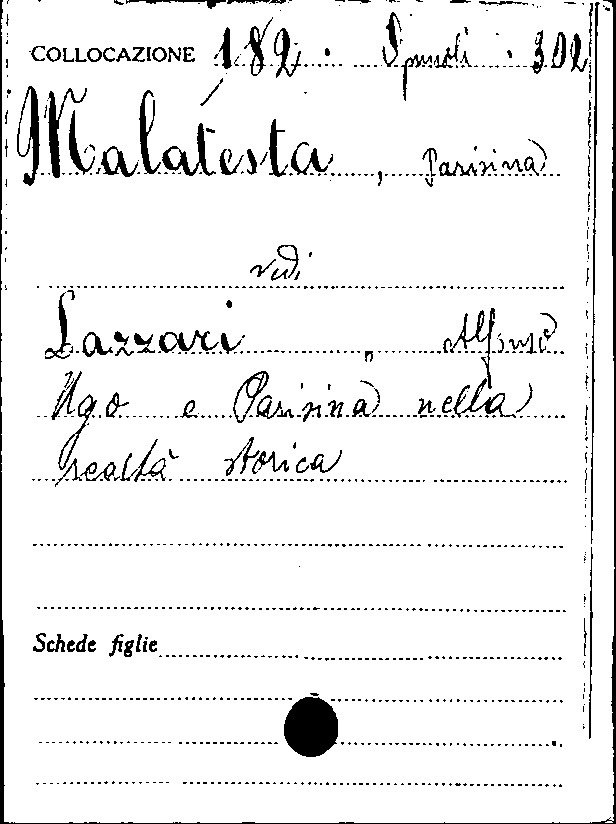 COLLOCAZIONE 182. Opuscoli. 302
Malatesta, Parisina
vedi
Lazzari, Alfonso
Ugo e Parisina nella
realtà storica
Schede figlie